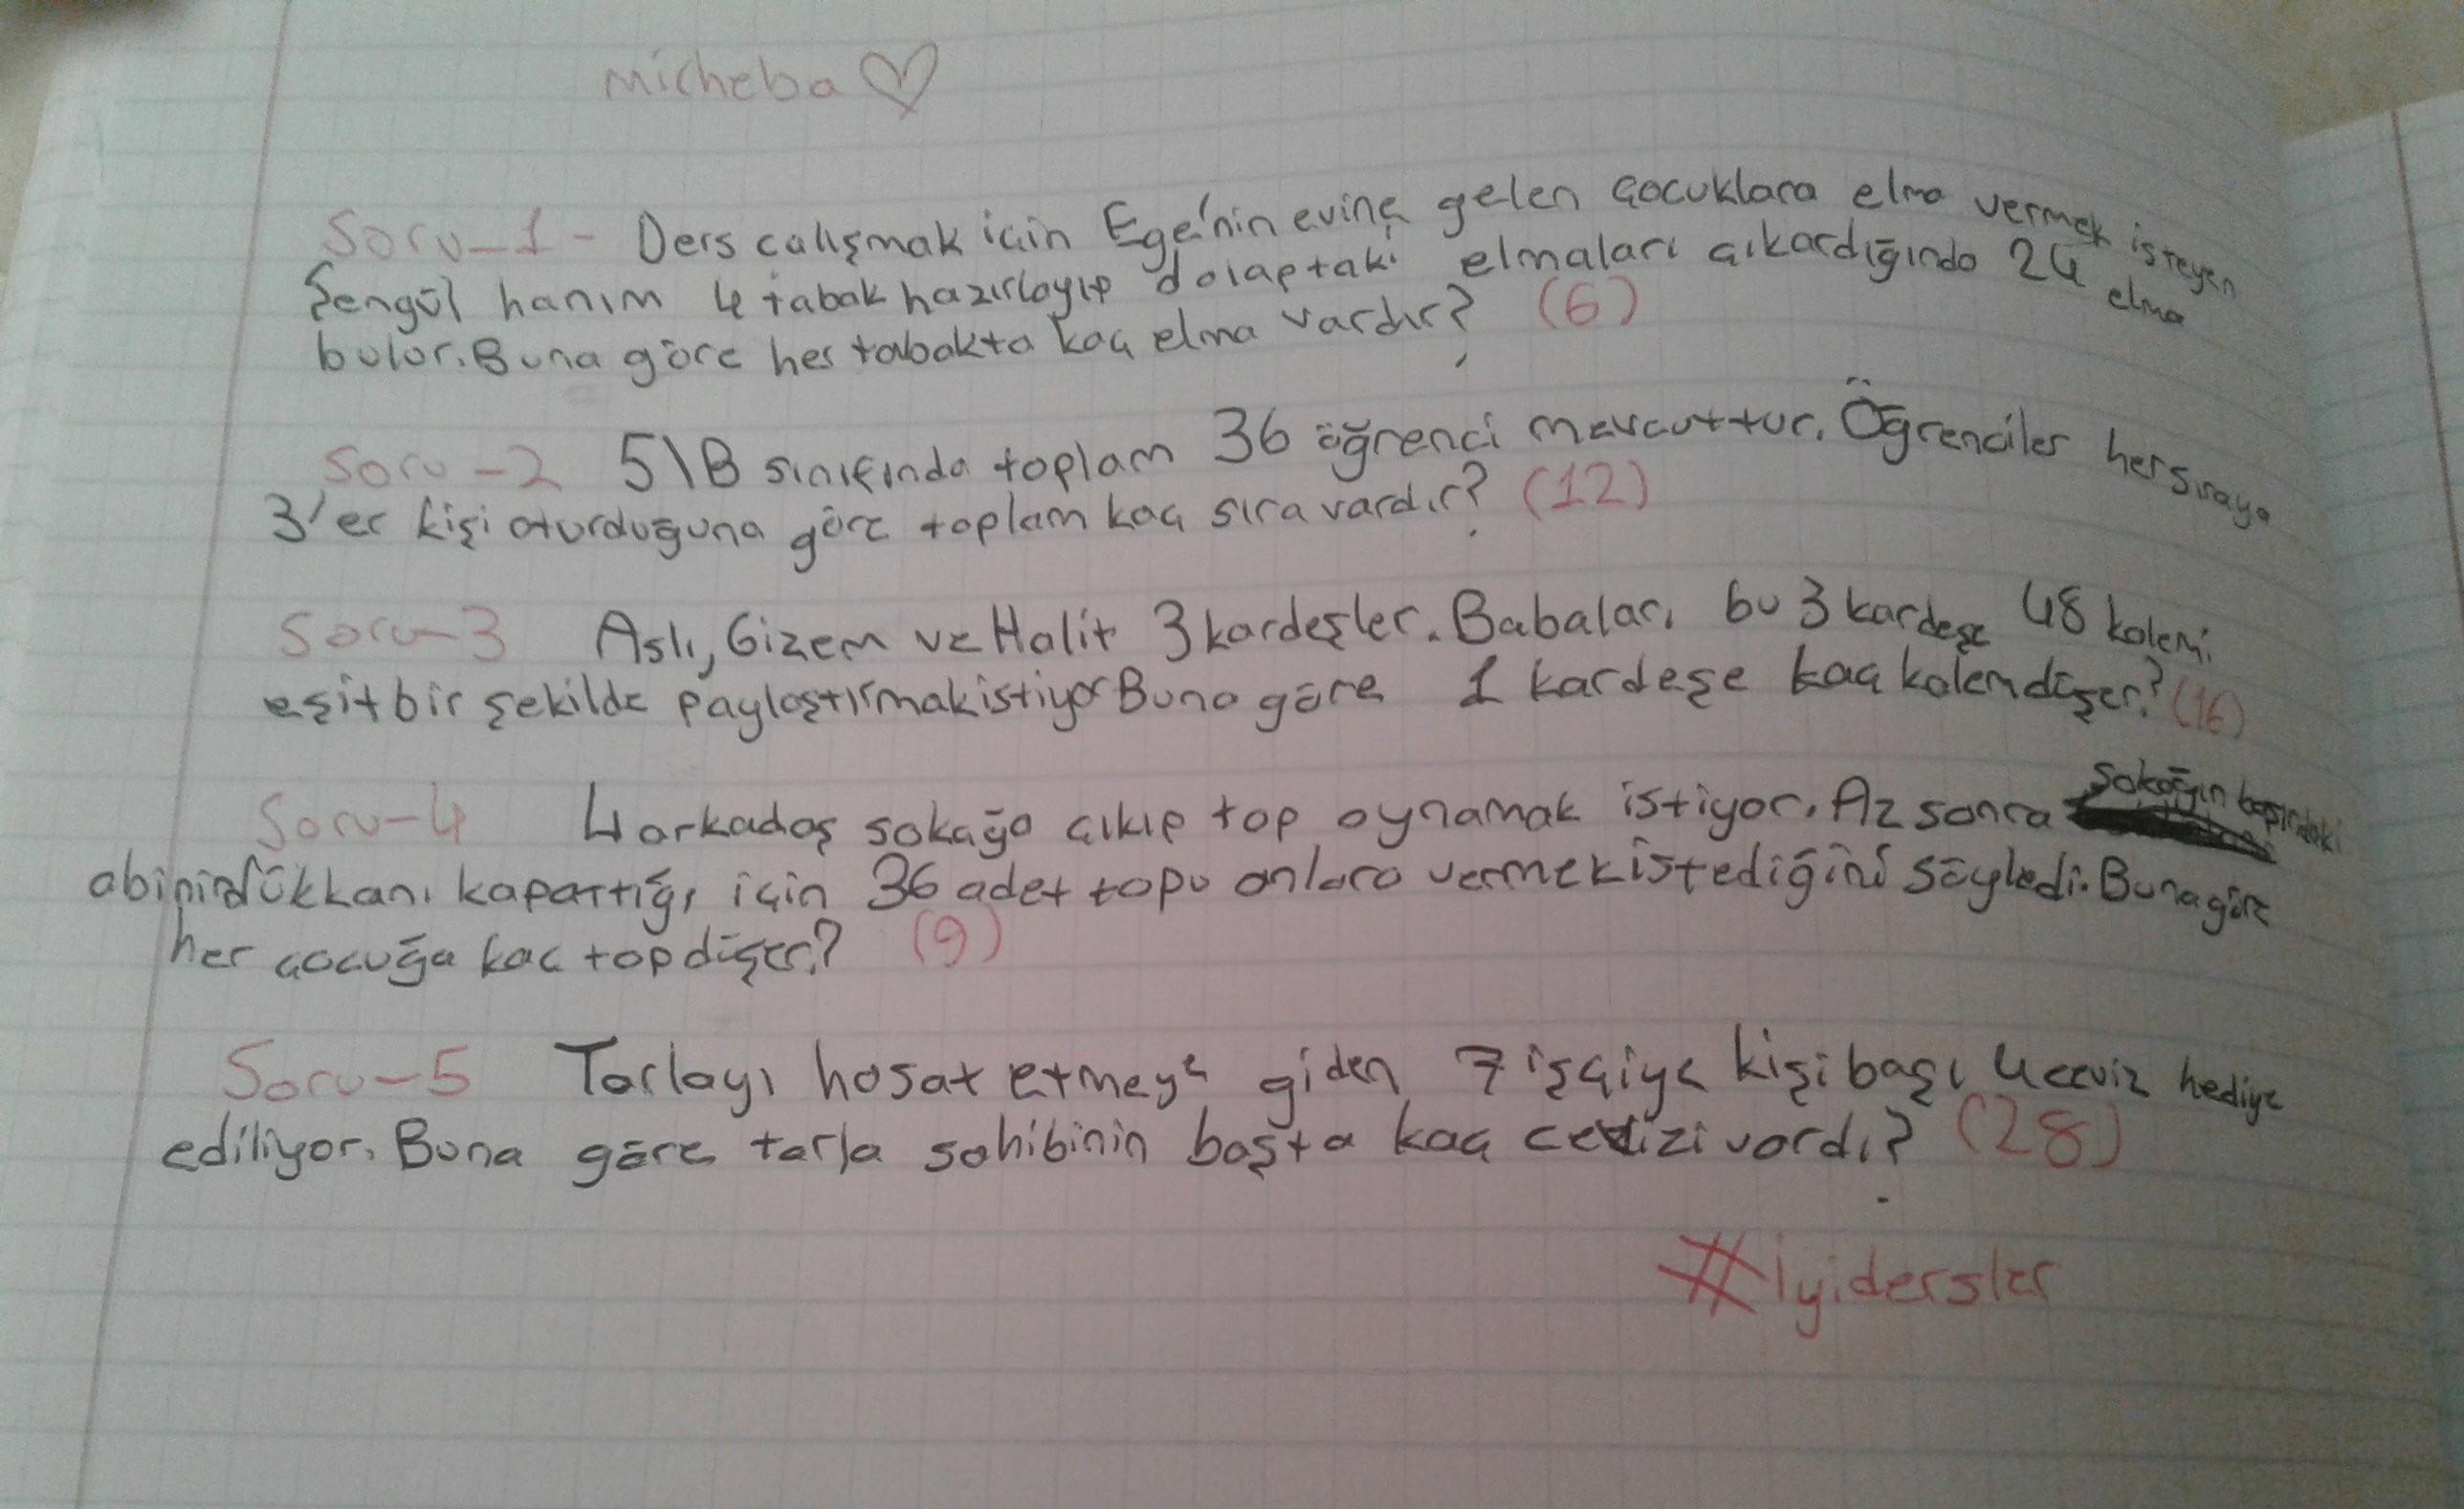 micheba ♡
Soru-1- Ders çalışmak için Ege'nin evine gelen çocuklara elma vermek isteyen
Şengül hanım 4 tabak hazırlayıp dolaptaki elmaları çıkardığında 24 elma
bulur. Buna göre her tabakta kaç elma vardır? (6)
Soru-2 5\B sınıfında toplam 36 öğrenci mevcuttur. Öğrenciler her sıraya
3'er kişi oturduğuna göre toplam kaç sıra vardır? (12)
Soru-3 Aslı, Gizem ve Halit 3 kardeşler. Babaları bu 3 kardeşe 48 kalemi
eşit bir şekilde paylaştırmak istiyor Buna göre 1 kardeşe kaç kalem düşer? (16)
Soru-4 4 arkadaş sokağa çıkıp top oynamak istiyor. Az sonra sokağın başındaki
abinin dükkanı kapattığı için 36 adet topu onlara vermek istediğini söyledi. Buna göre
her çocuğa kac top düşer? (9)
Soru-5 Tarlayı hasat etmeye giden 7 işçiye kişi başı 4 ceviz hediye
ediliyor. Buna göre tarla sahibinin başta kaç cevizi vardı? (28)
#iyidersler